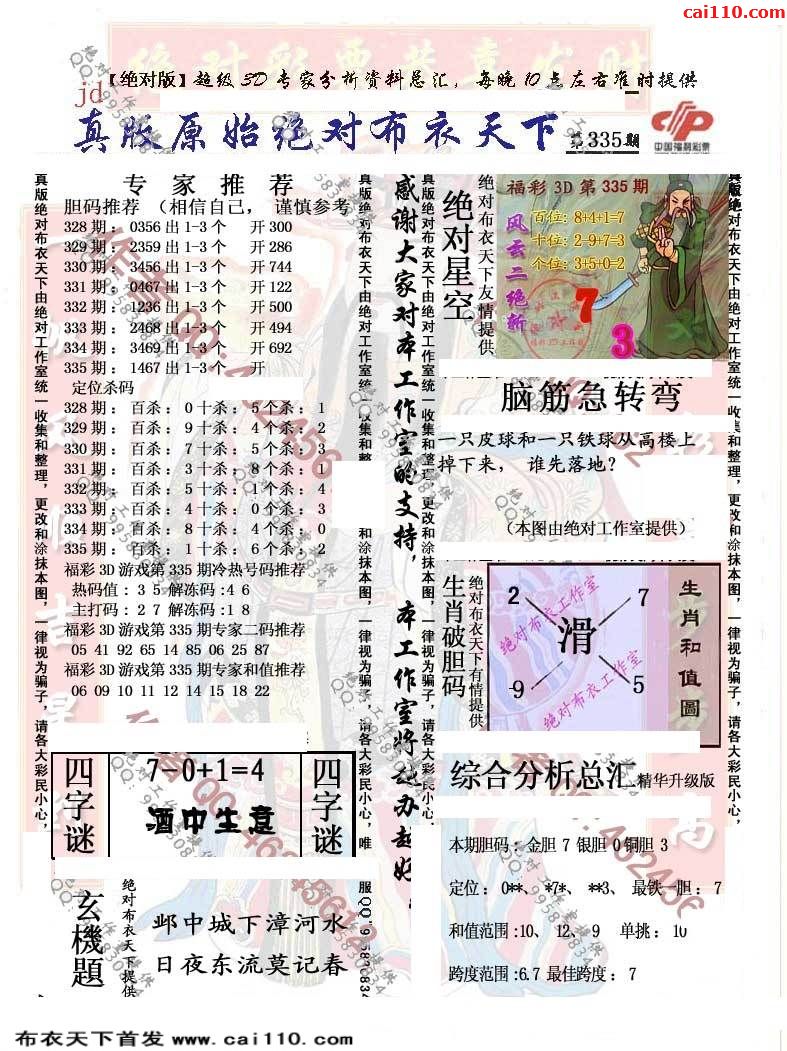 cai110.com
【绝对版】超级3D专家分析资料总汇，每晚10点左右准时提供
jd
真版原始绝对布衣天下 第335期
中国福利彩票
专家推荐
胆码推荐 （相信自己， 谨慎参考
328期： 0356出1-3个 开300
329期： 2359出1-3个 开286
330期： 3456出1-3个 开744
331期： 0467出1-3个 开122
332期： 1236出1-3个 开500
333期： 2468出1-3个 开494
334期： 3469出1-3个 开692
335期： 1467出1-3个 开
定位杀码
328期： 百杀：0十杀：5个杀：1
329期： 百杀：9十杀：4个杀：2
330期： 百杀：7十杀：5个杀：3
331期： 百杀：3十杀：8个杀：1
332期： 百杀：5十杀：1个杀：4
333期： 百杀：4十杀：0个杀：3
334期： 百杀：8十杀：4个杀：0
335期： 百杀：1十杀：6个杀：2
福彩3D游戏第335期冷热号码推荐
热码值：3 5 解冻码:4 6
主打码：2 7 解冻码:1 8
福彩3D游戏第335期专家二码推荐
05 41 92 65 14 85 06 25 87
福彩3D游戏第335期专家和值推荐
06 09 10 11 12 14 15 18 22
四字谜
7-0+1=4
酒中生意
四字谜
玄機題
绝对布衣天下提供
邺中城下漳河水
日夜东流莫记春
真版绝对布衣天下由绝对工作室统一收集和整理，更改和涂抹本图，一律视为骗子，请各大彩民小心，
感谢大家对本工作室的支持，本工作室将越办越好。
绝对星空
绝对布衣天下友情提供
福彩3D第335期
风云二绝斩
百位：8+4+1=7
十位：2-9+7=3
个位：3+5+0=2
7
3
脑筋急转弯
一只皮球和一只铁球从高楼上
掉下来， 谁先落地?
（本图由绝对工作室提供）
生肖破胆码
绝对布衣天下有情提供
2
7
滑
9
5
绝对布衣工作室
绝对布衣工作室
生肖和值圖
综合分析总汇 精华升级版
本期胆码：金胆 7 银胆 0 铜胆 3
定位：0**、 *7*、 **3、 最铁一胆：7
和值范围:10、 12、 9 单挑：10
跨度范围:6.7 最佳跨度：7
布衣天下首发 www.cai110.com